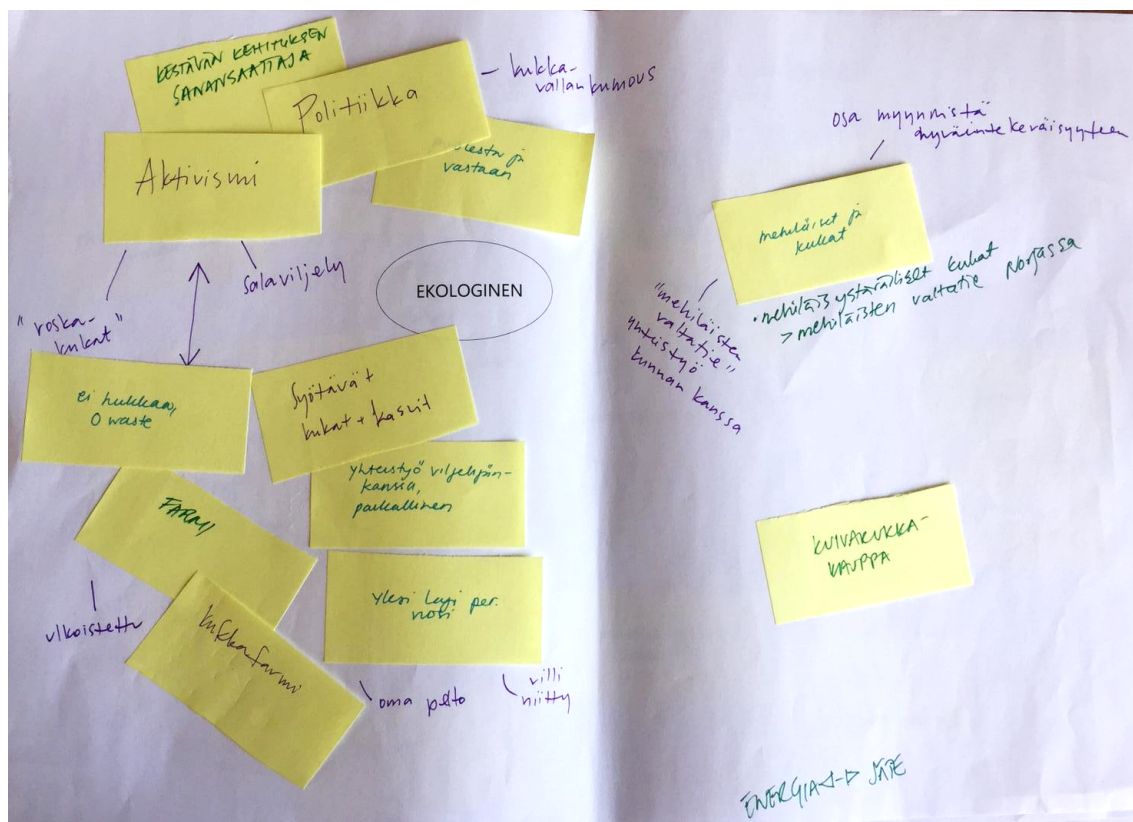 KESTÄVÄN KEHITYKSEN
SANANSAATTAJA
Politiikka
– kukka-
vallankumous
Aktivismi
vastaan
salaviljely
"roska-
kukat"
EKOLOGINEN
ei hukkaa,
0 waste
Syötävät
kukat + kasvit
yhteistyö viljelijän-
kanssa,
paikallinen
FARMI
ulkoistettu
kukkafarmi
yksi laji per.
oma pelto
villi
niitty
osa myynnistä
hyväntekeväisyyteen
mehiläiset ja
kukat
• mehiläisystävälliset kukat
> mehiläisten valtatie Norjassa
"mehiläisten
valtatie"
yhteistyö
kunnan kanssa
KUIVAKUKKA-
KAUPPA
ENERGIA JÄTE